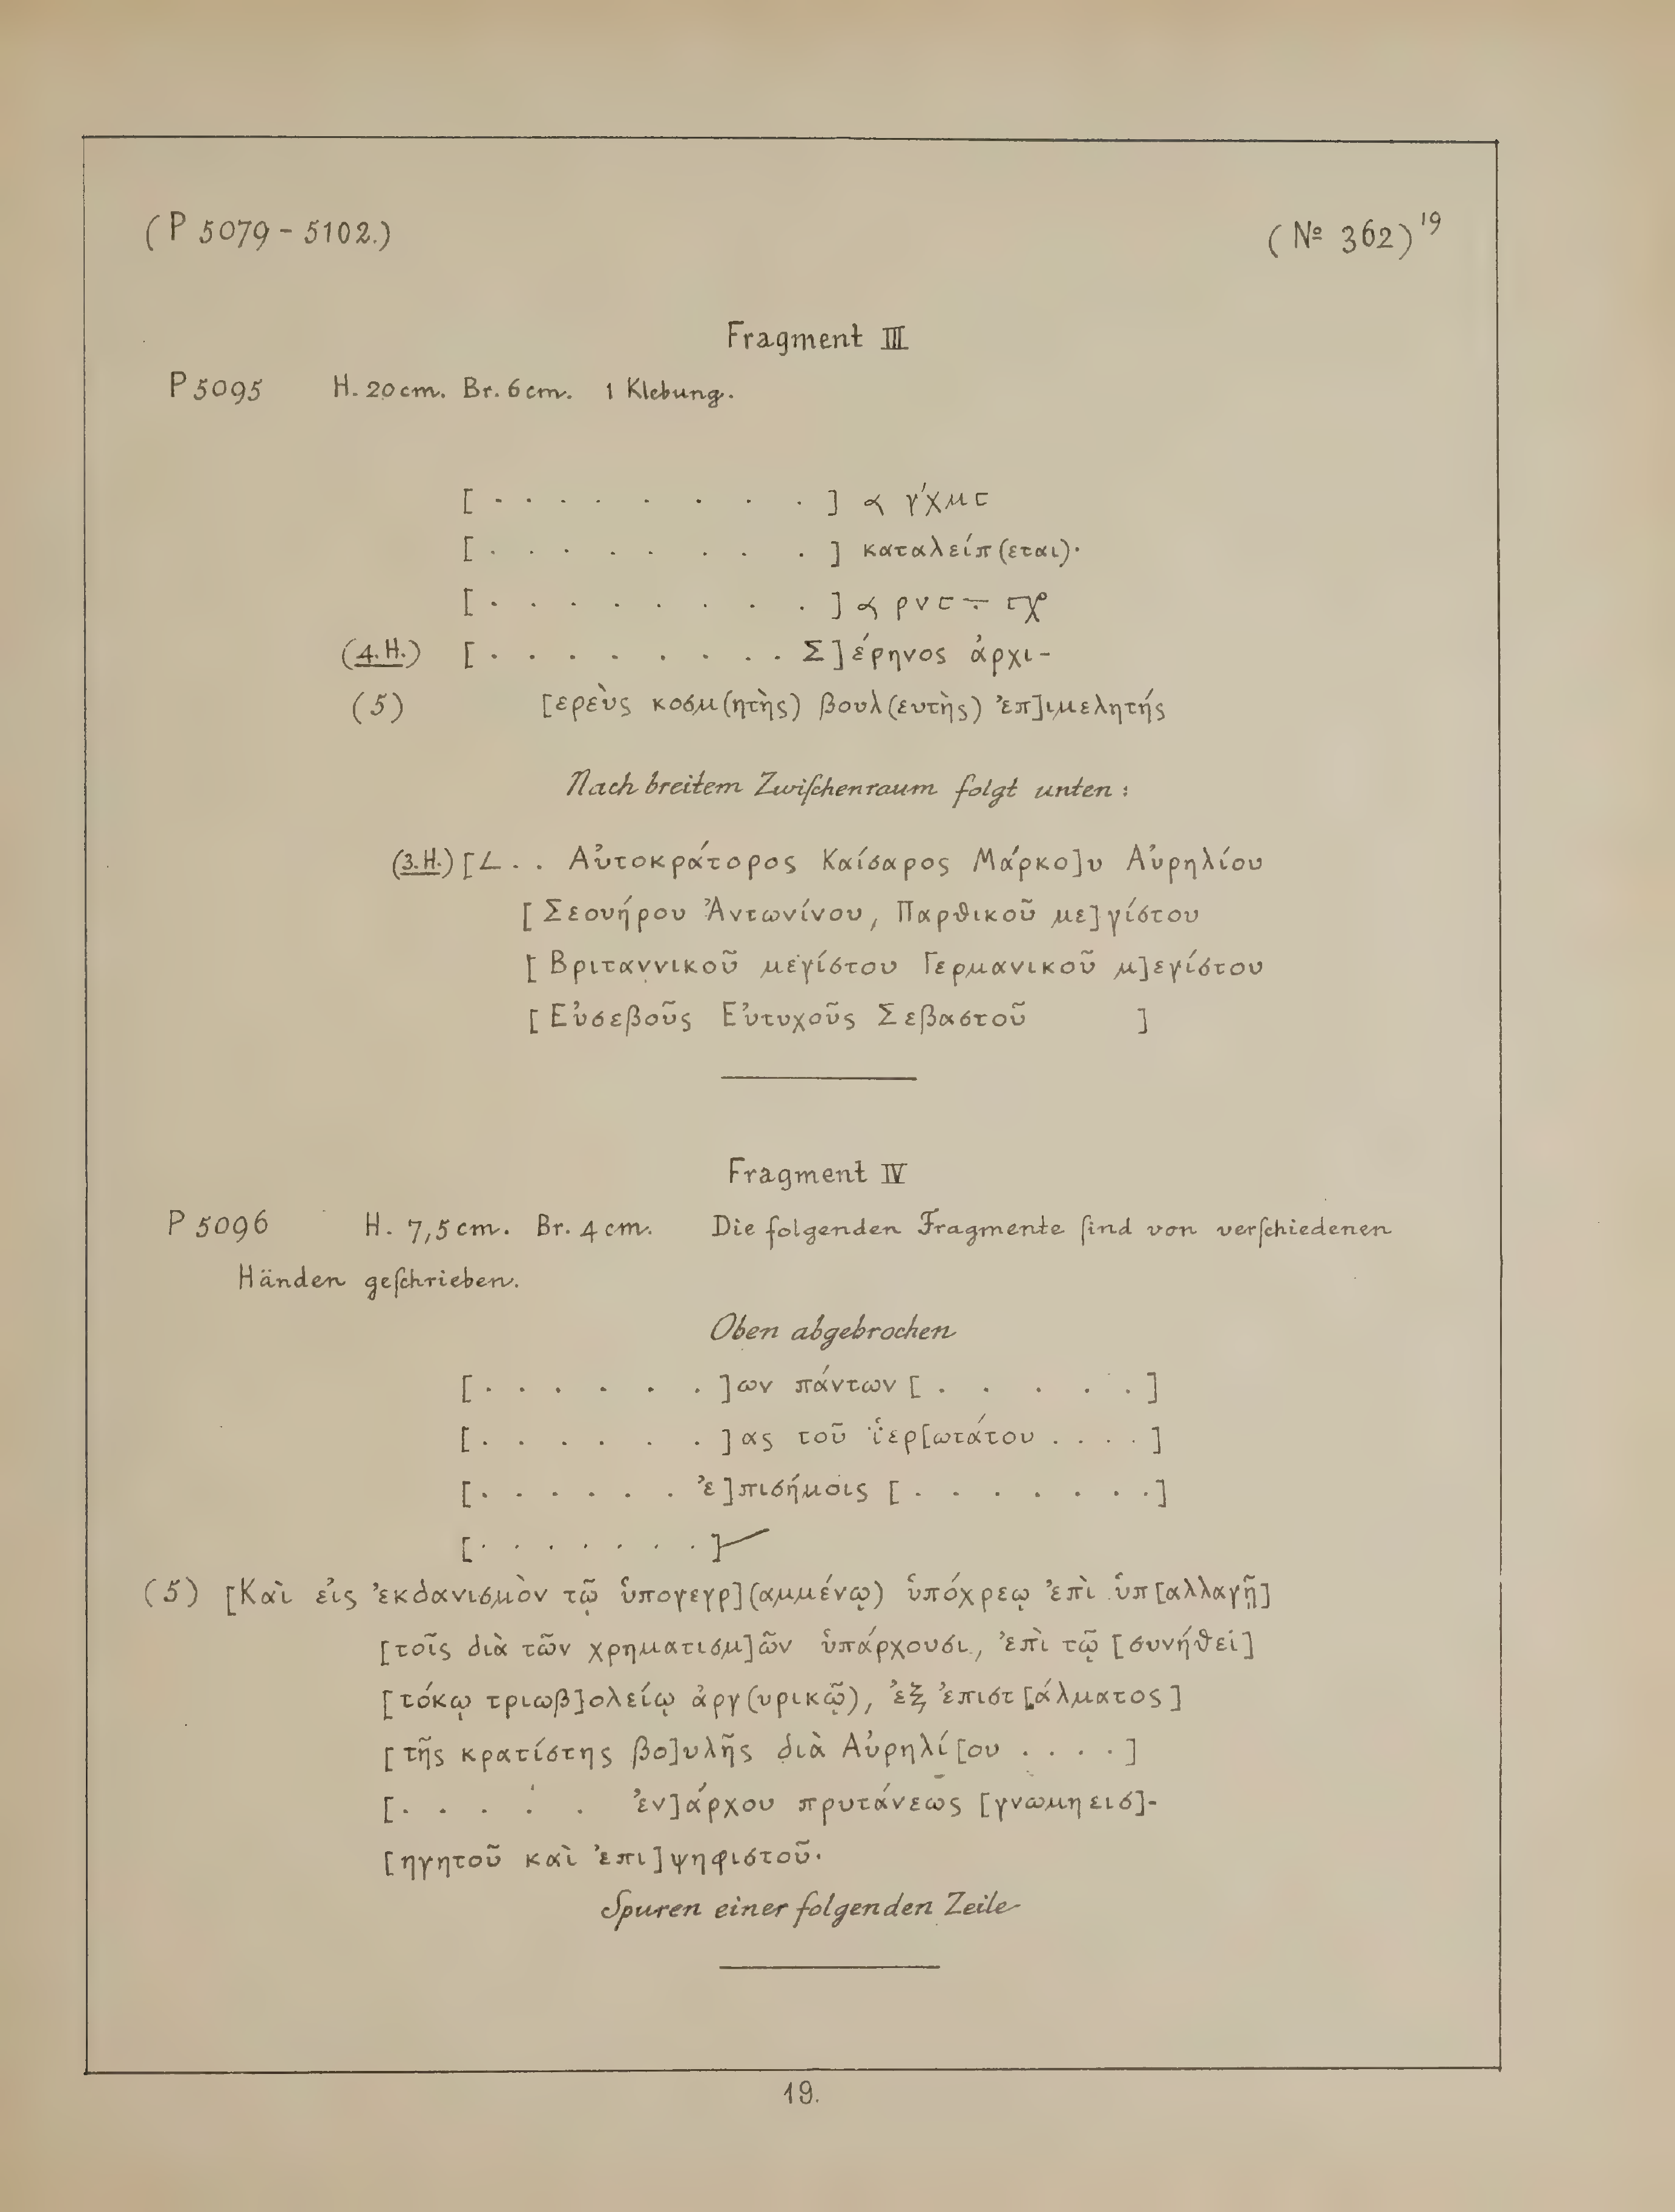 (P 5079 - 5102.) (№ 362) 19
Fragment III
P 5095 H. 20 cm. Br. 6 cm. 1 Klebung.
[. . . . . . . .] γ'χμ
[. . . . . . . .] καταλείπ(εται)·
[. . . . . . . .] ρν
(4. H.) [. . . . . . . . . Σ]έρηνος ἀρχι-
(5) [ερεὺς κοσμ(ητὴς) βουλ(ευτὴς) ἐπ]ιμελητής
Nach breitem Zwiſchenraum folgt unten:
(3. H.) [∠ . . Αὐτοκράτορος Καίσαρος Μάρκο]υ Αὐρηλίου
[Σεουήρου Ἀντωνίνου, Παρθικοῦ με]γίστου
[Βριταννικοῦ μεγίστου Γερμανικοῦ μ]εγίστου
[Εὐσεβοῦς Εὐτυχοῦς Σεβαστοῦ ]
Fragment IV
P 5096 H. 7,5 cm. Br. 4 cm. Die folgenden Fragmente ſind von verſchiedenen
Händen geſchrieben.
Oben abgebrochen
[. . . . . . .]ων πάντων [. . . . .]
[. . . . . . .]ας τοῦ ἱ̈ερ[ωτάτου . . . .]
[. . . . . . ἐ]πισήμοις [. . . . . . .]
[. . . . . . .]
(5) [Καὶ εἰς ἐκδανισμὸν τῷ ὑπογεγρ](αμμένῳ) ὑπόχρεῳ ἐπὶ ὑπ[αλλαγῇ]
[τοῖς διὰ τῶν χρηματισμ]ῶν ὑπάρχουσι, ἐπὶ τῷ [συνήθει]
[τόκῳ τριωβ]ολείῳ ἀργ(υρικῷ), ἐξ ἐπιστ[άλματος]
[τῆς κρατίστης βο]υλῆς διὰ Αὐρηλί[ου . . . .]
[. . . . . ἐν]άρχου πρυτάνεως [γνωμηεισ]-
[ηγητοῦ καὶ ἐπι]ψηφιστοῦ·
Spuren einer folgenden Zeile
19.